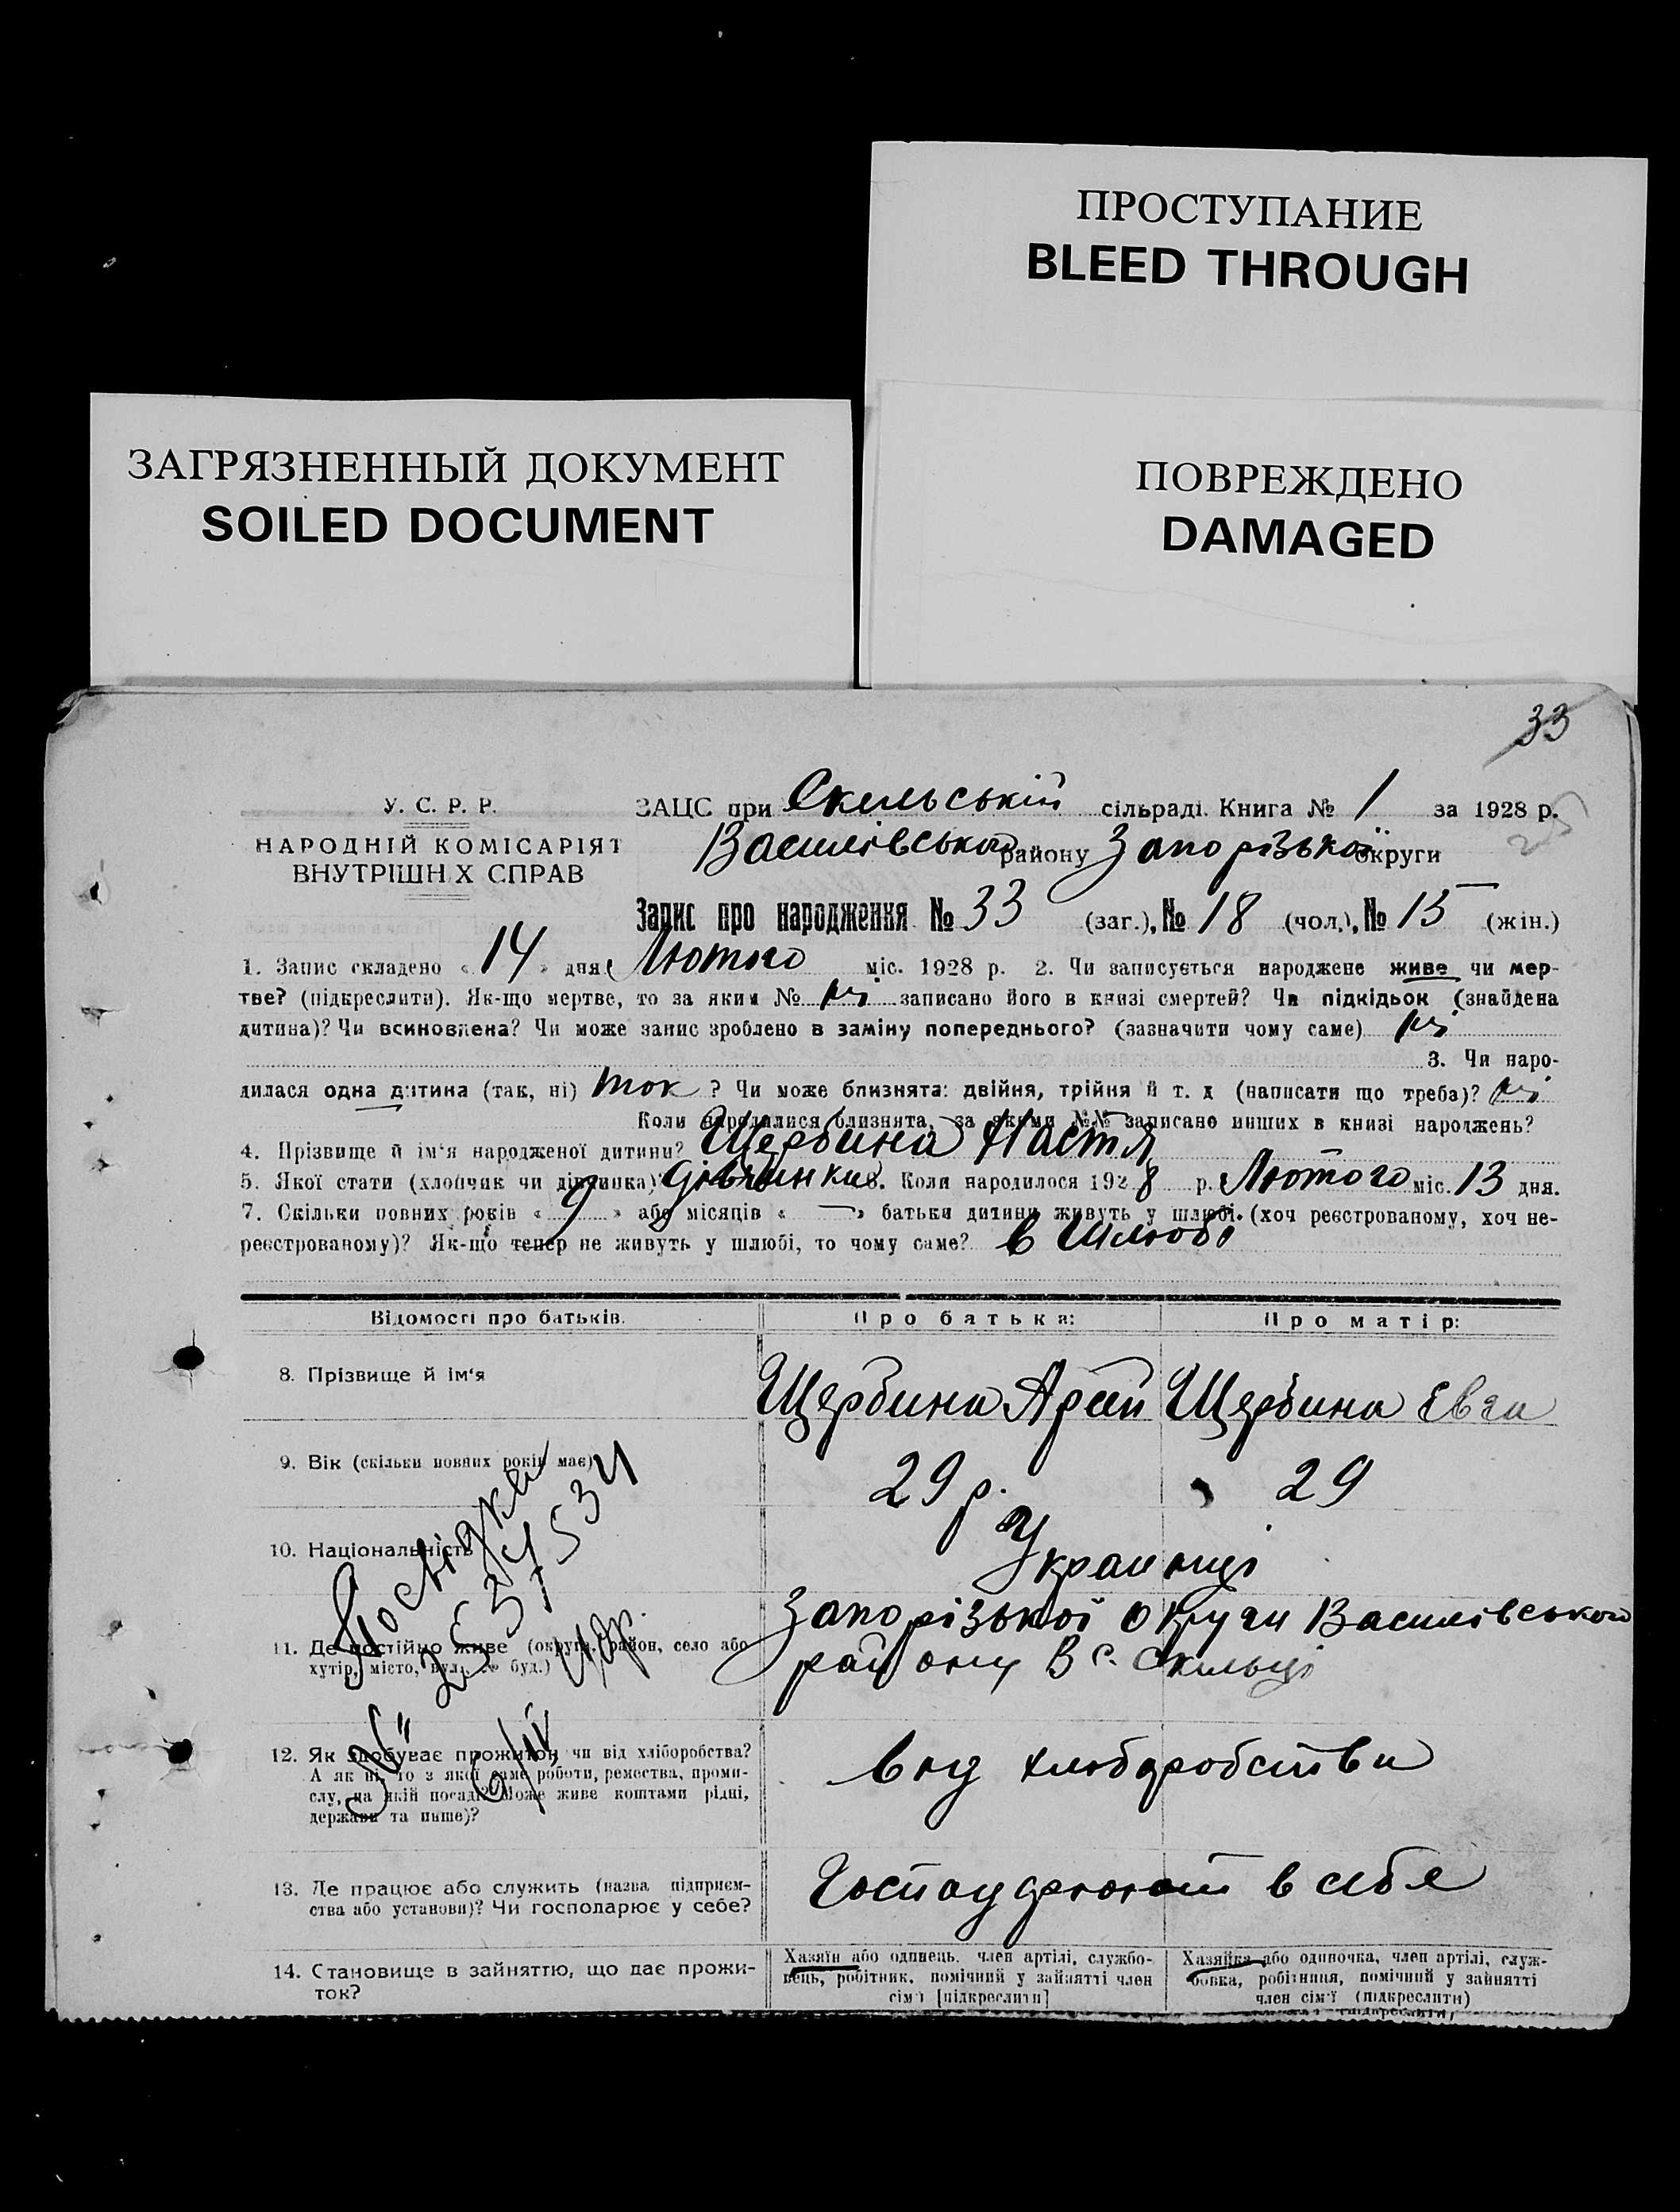 ПРОСТУПАНИЕ
BLEED THROUGH
ЗАГРЯЗНЕННЫЙ ДОКУМЕНТ
SOILED DOCUMENT
ПОВРЕЖДЕНО
DAMAGED
33
У. С. Р. Р.
НАРОДНІЙ КОМІСАРІЯТ
ВНУТРІШН Х СПРАВ
ЗАЦС при Скельській сільраді. Книга № 1 за 1928 р.
Василівського району Запорізької округи
Запис про народження № 33 (заг.), № 18 (чол.), № 15 (жін.)
1. Запис складено « 14 » дня Лютого міс. 1928 р. 2. Чи записується народжене живе чи мер-
тве? (підкреслити). Як-що мертве, то за яким № ні записано його в книзі смертей? Чи підкідьок (знайдена
дитина)? Чи всиновлена? Чи може запис зроблено в заміну попереднього? (зазначити чому саме) ні
3. Чи наро-
дилася одна дитина (так, ні) так ? Чи може близнята: двійня, трійня й т. д (написати що треба)? ні
Коли народилися близнята, за якими №№ записано инших в книзі народжень?
4. Прізвище й ім'я народженої дитини? Щербина Настя
5. Якої стати (хлопчик чи дівчинка) дівчинки 6. Коли народилося 1928 р. Лютого міс. 13 дня.
7. Скільки повних років « 9 » або місяців « — » батьки дитини живуть у шлюбі. (хоч реєстрованому, хоч не-
реєстрованому)? Як-що тепер не живуть у шлюбі, то чому саме? в шлюбі
Відомості про батьків. Про батька: Про матір:
8. Прізвище й ім'я Щербина Арсій Щербина Евга
9. Вік (скільки повних років має) 29 р. 29
10. Національність Украинці
11. Де постійно живе (округа, район, село або
хутір, місто, вул. № буд.)
Запорізької округи Василівського
району В с. Скельці
12. Як здобуває прожиток чи від хліборобства?
А як ні, то з якої саме роботи, ремества, проми-
слу, на якій посаді? Може живе коштами рідні,
держави та инше)?
від хліборобства
13. Де працює або служить (назва підприєм-
ства або установи)? Чи господарює у себе?
Господарюют в себе
14. Становище в зайняттю, що дає прожи-
ток?
Хазяїн або одинець, член артілі, службо-
вець, робітник, помічний у зайнятті член
сім'ї [підкреслити]
Хазяйка або одиночка, член артілі, служ-
бовка, робітниця, помічний у зайнятті
член сім'ї (підкреслити)